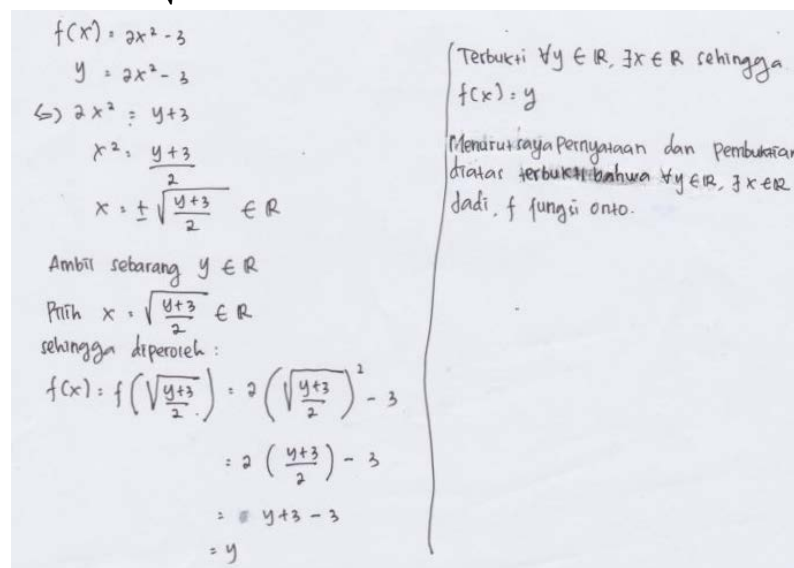 f(x) = 2x² - 3
y = 2x² - 3
⇔) 2x² = y+3
x² = \frac{y+3}{2}
x = ± \sqrt{\frac{y+3}{2}} ∈ R
Ambil sebarang y ∈ R
Pilih x = \sqrt{\frac{y+3}{2}} ∈ R
sehingga diperoleh :
f(x) = f(\sqrt{\frac{y+3}{2}}) = 2(\sqrt{\frac{y+3}{2}})² - 3
= 2(\frac{y+3}{2}) - 3
= y+3 - 3
= y
Terbukti ∀y ∈ R, ∃x ∈ R sehingga
f(x) = y
Menurut saya Pernyataan dan pembuktian
diatas terbukti bahwa ∀y ∈ R, ∃x ∈ R
Jadi, f fungsi onto.